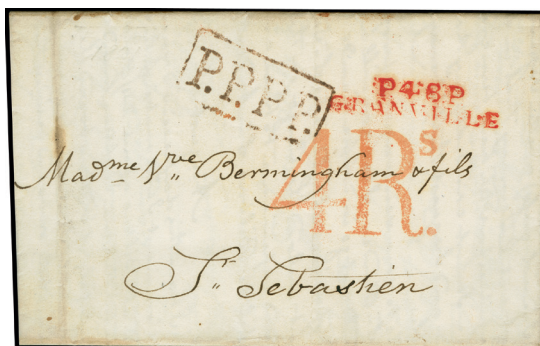 P.P.P.P.
P48P
GRANVILLE
4Rs.
Madme Vve Bermingham & fils
St Sebastien